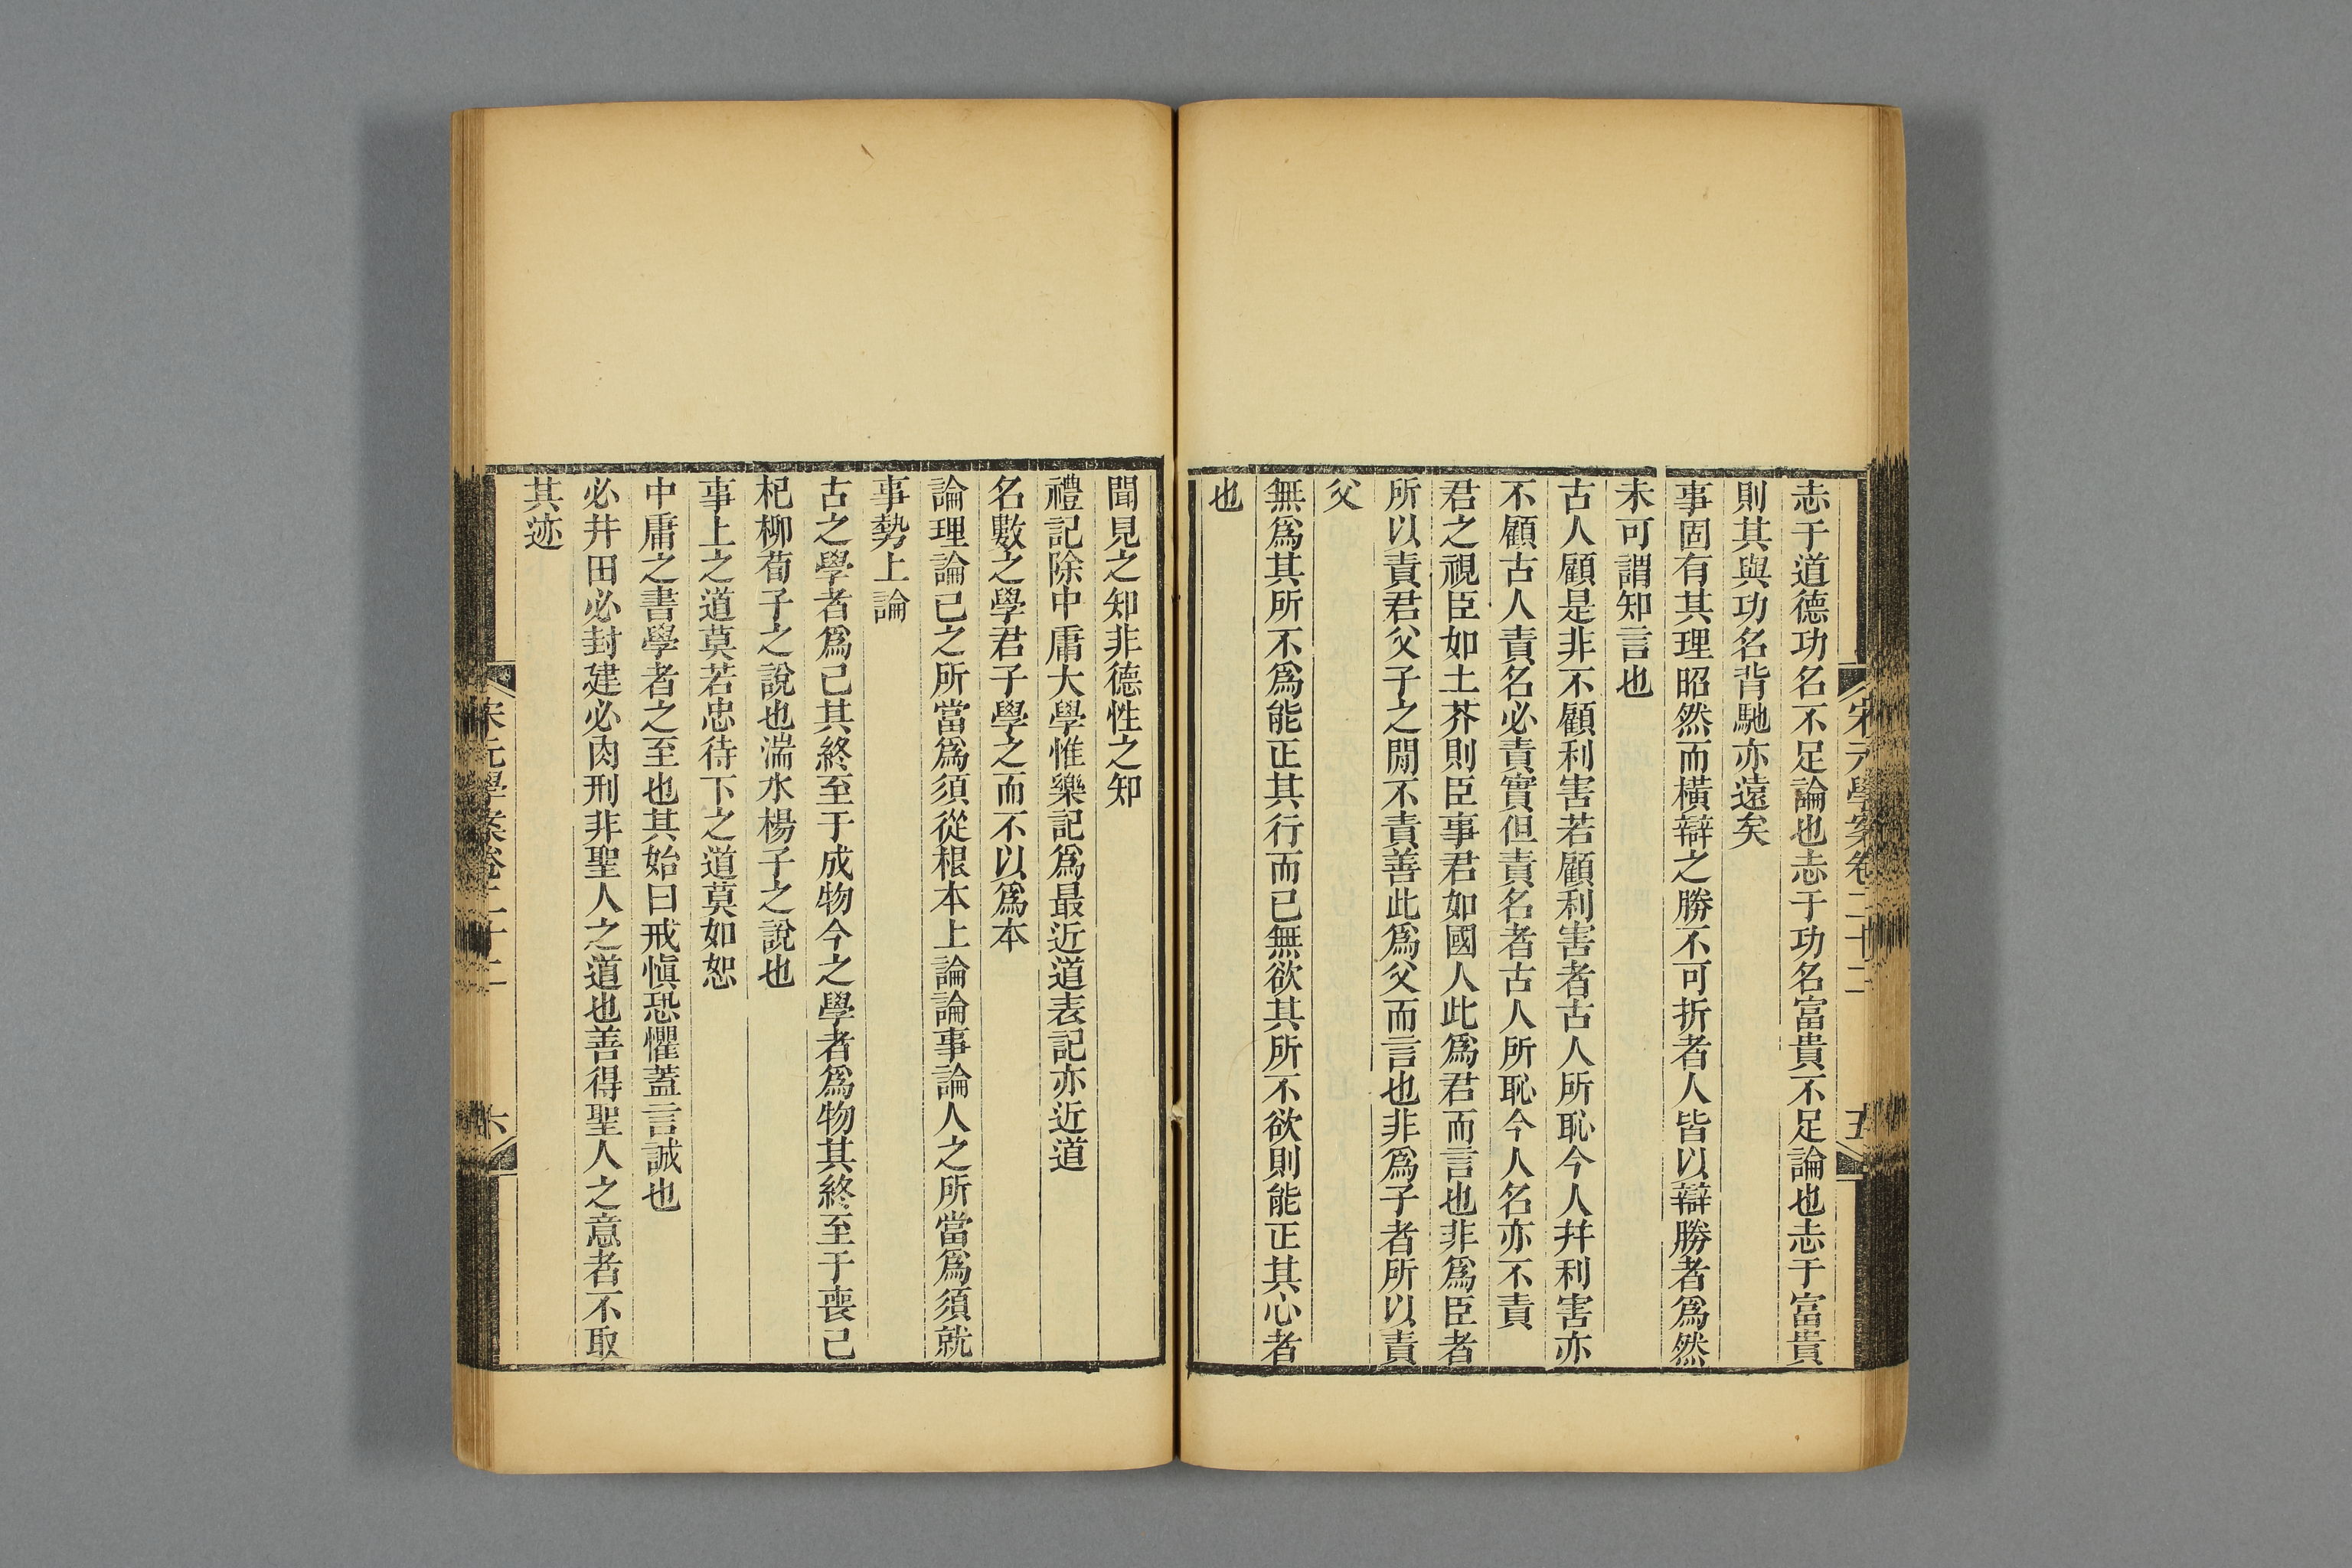 宋元學案卷二十二
五
志于道德功名不足論也志于功名富貴不足論也志于富貴
則其與功名背馳亦遠矣
事固有其理昭然而橫辯之勝不可折者人皆以辯勝者爲然
未可謂知言也
古人顧是非不顧利害若顧利害者古人所恥今人幷利害亦
不顧古人責名必責實但責名者古人所恥今人名亦不責
君之視臣如土芥則臣事君如國人此爲君而言也非爲臣者
所以責君父子之閒不責善此爲父而言也非爲子者所以責
父
無爲其所不爲能正其行而已無欲其所不欲則能正其心者
也
聞見之知非德性之知
禮記除中庸大學惟樂記爲最近道表記亦近道
名數之學君子學之而不以爲本
論理論己之所當爲須從根本上論論事論人之所當爲須就
事勢上論
古之學者爲己其終至于成物今之學者爲物其終至于喪己
杞柳荀子之說也湍水楊子之說也
事上之道莫若忠待下之道莫如恕
中庸之書學者之至也其始曰戒愼恐懼蓋言誠也
必井田必封建必肉刑非聖人之道也善得聖人之意者不取
其迹
宋元學案卷二十二
六